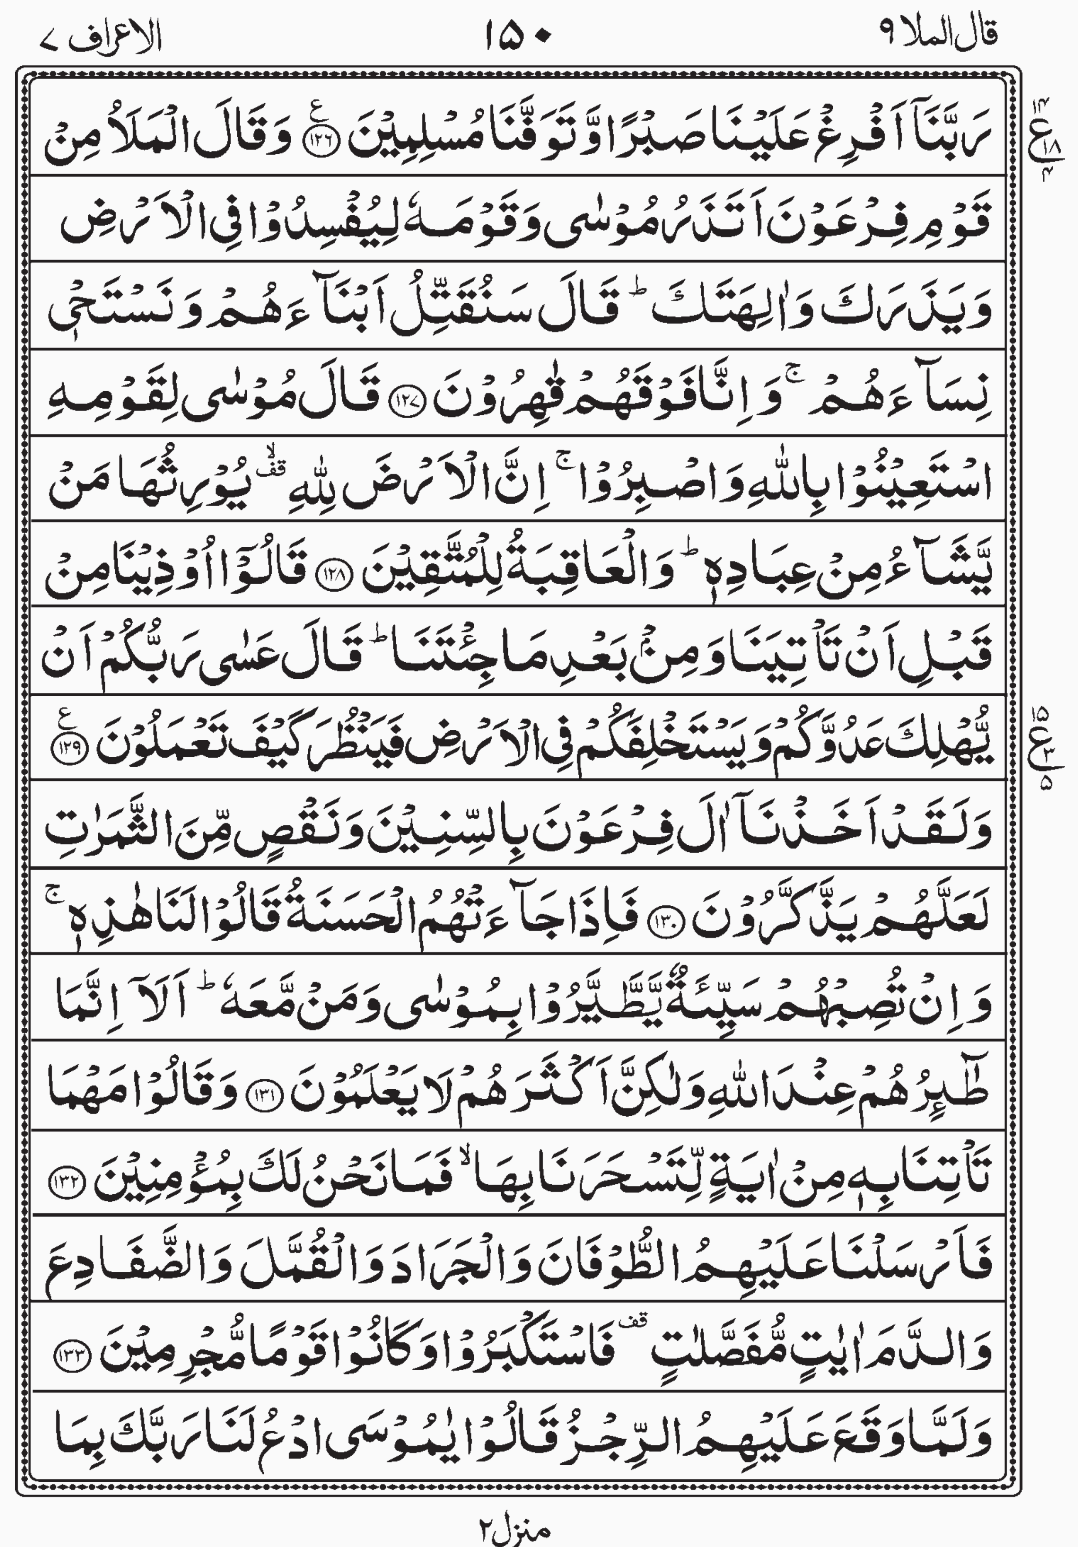 قال الملا ۹
۱۵۰
الاعراف ۷
رَبَّنَآ اَفْرِغْ عَلَيْنَا صَبْرًا وَّتَوَفَّنَا مُسْلِمِيْنَ ﴿۱۲۶﴾ ع وَقَالَ الْمَلَاُ مِنْ
۱۴
ع
۱۸
۴
قَوْمِ فِرْعَوْنَ اَتَذَرُ مُوْسٰى وَقَوْمَهٗ لِيُفْسِدُوْا فِى الْاَرْضِ
وَيَذَرَكَ وَاٰلِهَتَكَ ؕ قَالَ سَنُقَتِّلُ اَبْنَآءَهُمْ وَنَسْتَحْىٖ
نِسَآءَهُمْ ۚ وَاِنَّا فَوْقَهُمْ قٰهِرُوْنَ ﴿۱۲۷﴾ قَالَ مُوْسٰى لِقَوْمِهِ
اسْتَعِيْنُوْا بِاللّٰهِ وَاصْبِرُوْا ۚ اِنَّ الْاَرْضَ لِلّٰهِ ۙ قف يُوْرِثُهَا مَنْ
يَّشَآءُ مِنْ عِبَادِهٖ ؕ وَالْعَاقِبَةُ لِلْمُتَّقِيْنَ ﴿۱۲۸﴾ قَالُوْۤا اُوْذِيْنَا مِنْ
قَبْلِ اَنْ تَاْتِيَنَا وَمِنْۢ بَعْدِ مَا جِئْتَنَا ؕ قَالَ عَسٰى رَبُّكُمْ اَنْ
يُّهْلِكَ عَدُوَّكُمْ وَيَسْتَخْلِفَكُمْ فِى الْاَرْضِ فَيَنْظُرَ كَيْفَ تَعْمَلُوْنَ ﴿۱۲۹﴾ ع
۱۵
ع
۳
۵
وَلَقَدْ اَخَذْنَآ اٰلَ فِرْعَوْنَ بِالسِّنِيْنَ وَنَقْصٍ مِّنَ الثَّمَرٰتِ
لَعَلَّهُمْ يَذَّكَّرُوْنَ ﴿۱۳۰﴾ فَاِذَا جَآءَتْهُمُ الْحَسَنَةُ قَالُوْا لَنَا هٰذِهٖ ۚ
وَاِنْ تُصِبْهُمْ سَيِّئَةٌ يَّطَّيَّرُوْا بِمُوْسٰى وَمَنْ مَّعَهٗ ؕ اَلَآ اِنَّمَا
طٰٓئِرُهُمْ عِنْدَ اللّٰهِ وَلٰكِنَّ اَكْثَرَهُمْ لَا يَعْلَمُوْنَ ﴿۱۳۱﴾ وَقَالُوْا مَهْمَا
تَاْتِنَا بِهٖ مِنْ اٰيَةٍ لِّتَسْحَرَنَا بِهَا ۙ فَمَا نَحْنُ لَكَ بِمُؤْمِنِيْنَ ﴿۱۳۲﴾
فَاَرْسَلْنَا عَلَيْهِمُ الطُّوْفَانَ وَالْجَرَادَ وَالْقُمَّلَ وَالضَّفَادِعَ
وَالدَّمَ اٰيٰتٍ مُّفَصَّلٰتٍ قف فَاسْتَكْبَرُوْا وَكَانُوْا قَوْمًا مُّجْرِمِيْنَ ﴿۱۳۳﴾
وَلَمَّا وَقَعَ عَلَيْهِمُ الرِّجْزُ قَالُوْا يٰمُوْسَى ادْعُ لَنَا رَبَّكَ بِمَا
منزل ۲